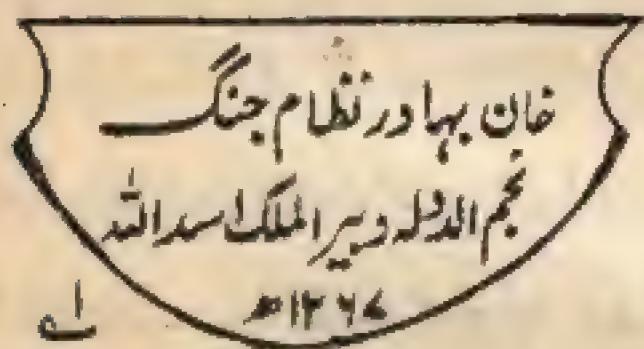 خان بہادر نظام جنگ
نجم الدولہ دبیر الملک اسد اللہ
۱۲۶۷ھ